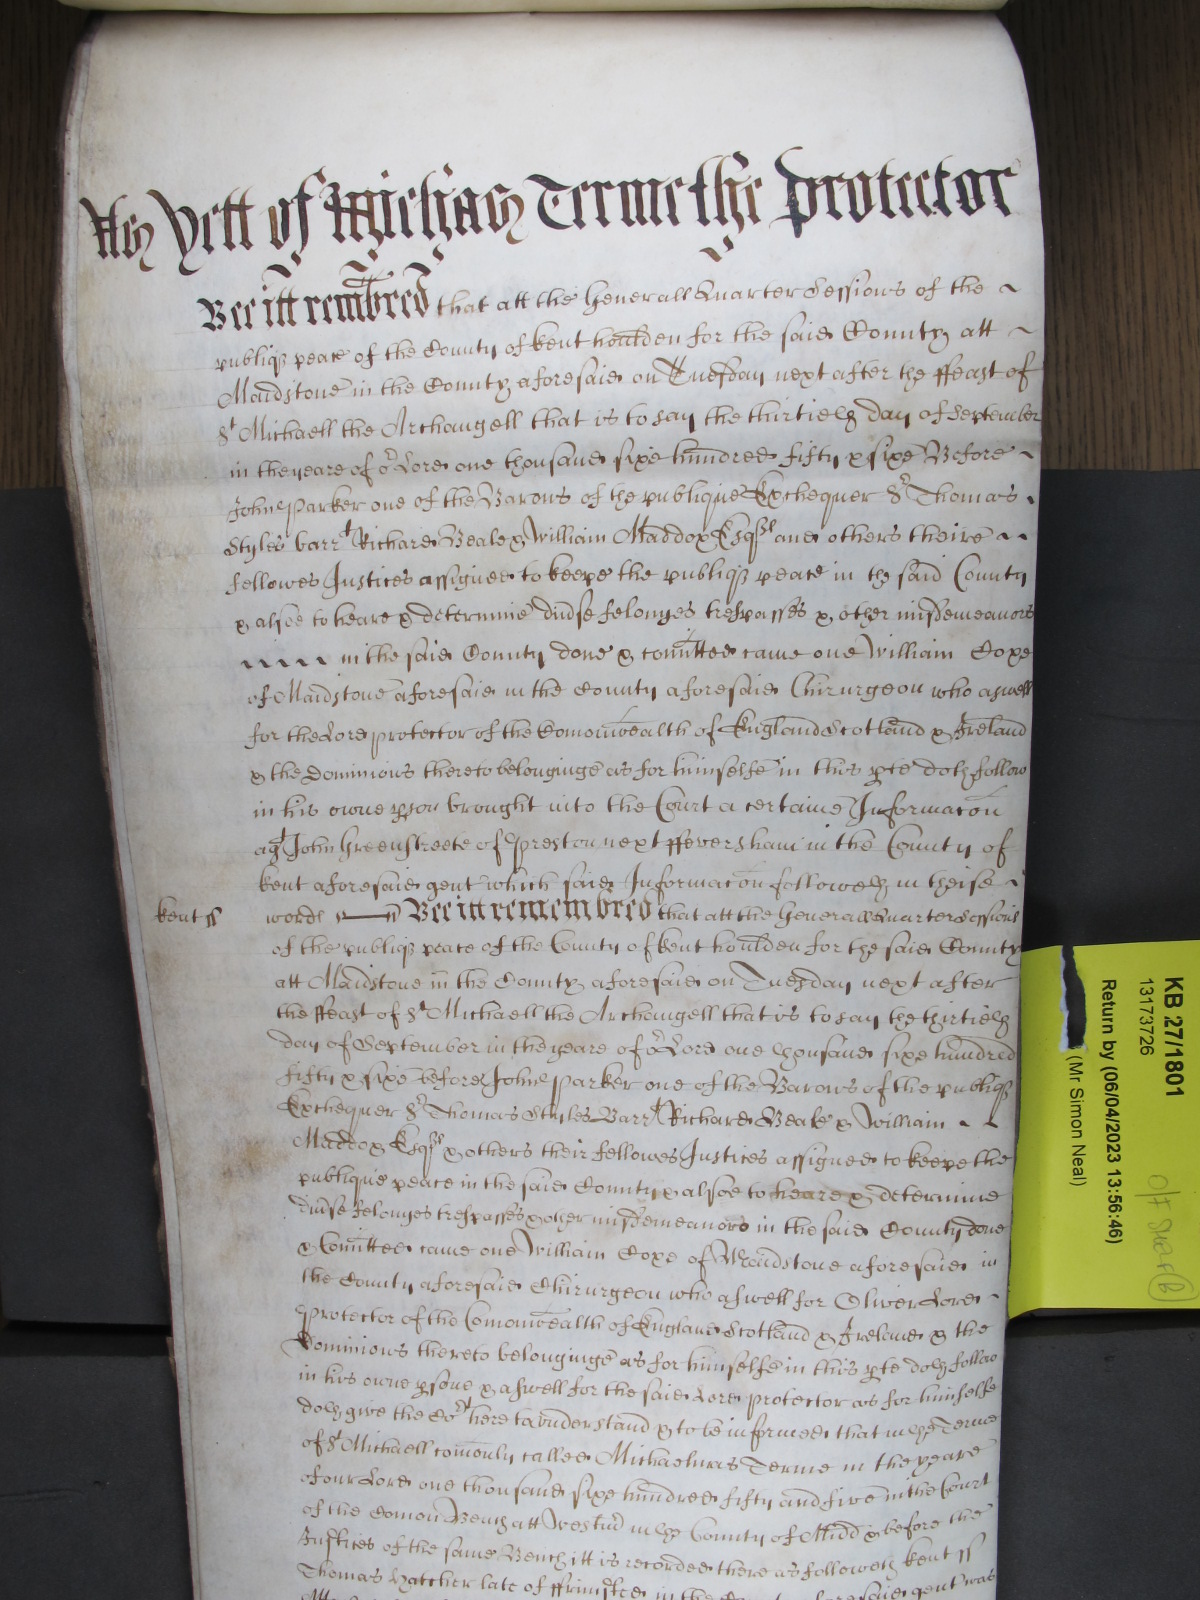 As Yett of Michās Terme the Protector
Bee itt remēbred that att the Generall Quarter Sessions of the
publiq peace of the County of Kent houlden for the said County att
Maidstone in the County aforesaid on Tuesday next after the ffeast of
St Michaell the Archangell that is to say the thirtieth day of September
in the yeare of or Lord one thousand sixe hundred fifty & sixe Before
John Parker one of the Barons of the publique Exchequer Sr Thomas
Styles barrt Richard Beale & William Maddox Esqrs and others theire
fellowes Justices assigned to keepe the publiq peace in the said County
& alsoe to heare & determine divse felonyes trespasses & other misdemeanors
in the said County done & comitted came one William Cope
of Maidstone aforesaid in the County aforesaid Chirurgeon who aswell
for the Lord Protector of the Comonwealth of England Scotland & Ireland
& the Dominions thereto belonginge as for himselfe in this pte doth follow
in his owne pson brought into the Court a certaine Informacon
agt John Greenstreete of Preston next ffeversham in the County of
Kent aforesaid gent which said Informacon followeth in theise
Kent ss words Bee itt remembred that att the Generall Quarter Sessions
of the publiq peace of the County of Kent houlden for the said County
att Maidstone in the County aforesaid on Tuesday next after
the ffeast of St Michaell the Archangell that is to say the thirtieth
day of September in the yeare of or Lord one thousand sixe hundred
fifty & sixe before John Parker one of the Barons of the publiq
Exchequer Sr Thomas Styles Barrt Richard Beale & William
Maddox Esqrs & others their fellowes Justices assigned to keepe the
publique peace in the said County & alsoe to heare & determine
divse felonyes trespasses & other misdemeanors in the said County done
& Comitted came one William Cope of Maidstone aforesaid in
the County aforesaid Chirurgeon who aswell for Oliver Lord
Protector of the Comonwealth of England Scotland & Ireland & the
Dominions thereto belonginge as for himselfe in this pte doth follow
in his owne psone & aswell for the said Lord Protector as for himselfe
doth give the Cort here to understand & to be informed that in the Terme
of St Michaell comonly called Michaelmas Terme in the yeare
of our Lord one thousand sixe hundred fifty and five in the Court
of the Comon Bench att Westmr in the County of Midd & before the
Justices of the same Bench itt is recorded there as followeth Kent ss
Thomas Hatcher late of in the County aforesaid gent was
KB 27/1801
13173726
Return by (06/04/2023 13:56:46)
(Mr Simon Neal)